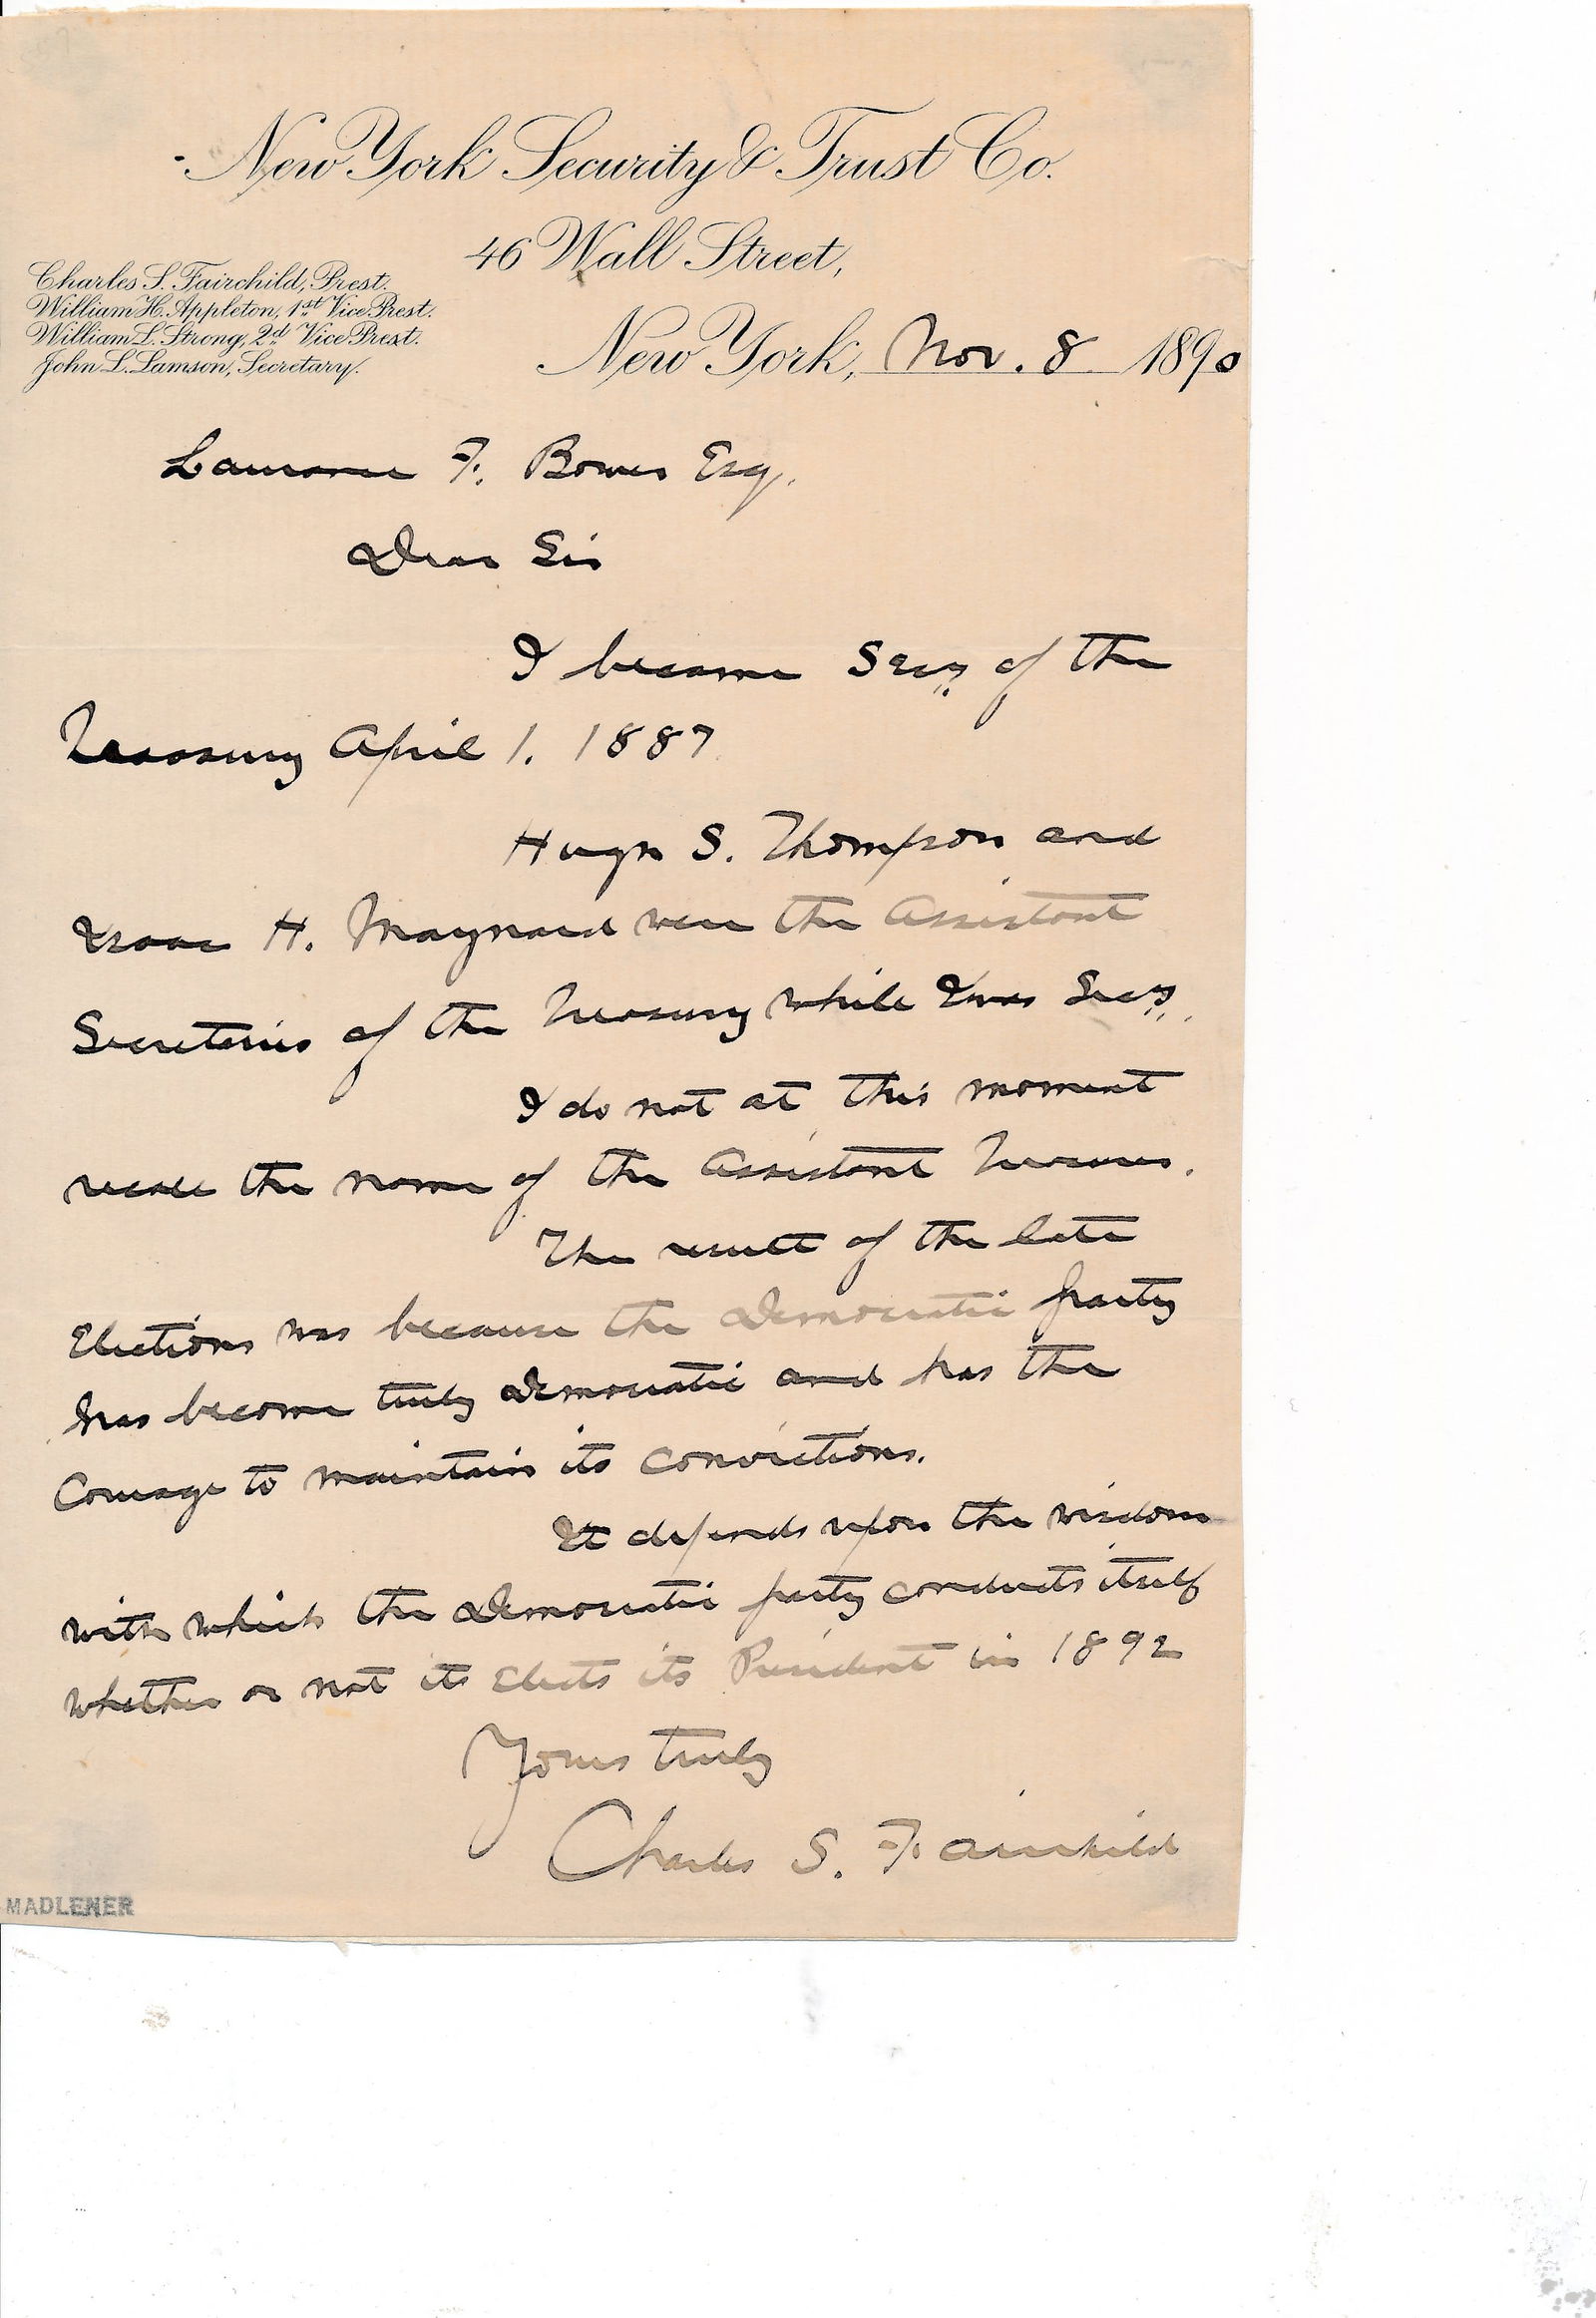 New York Security & Trust Co.
46 Wall Street,
Charles S. Fairchild, Prest.
William H. Appleton, 1st Vice Prest.
William L. Strong, 2d Vice Prest.
John L. Lamson, Secretary.
New York, Nov. 8 1890
Laurence F. Bower Esq.
Dear Sir
I became Secy of the
Treasury April 1. 1887
Hugh S. Thompson and
Isaac H. Maynard were the Assistant
Secretaries of the Treasury while I was Secy.
I do not at this moment
recall the name of the Assistant Treasurer.
The result of the late
Elections was because the Democratic party
has become truly democratic and has the
Courage to maintain its convictions.
It depends upon the wisdom
with which the Democratic party conducts itself
whether or not its Elects its President in 1892
Yours truly
Charles S. Fairchild
MADLENER